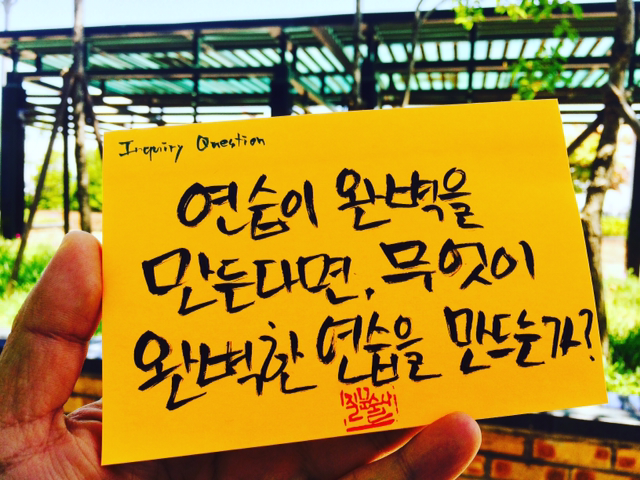 Inquiry Question
연습이 완벽을
만든다면, 무엇이
완벽한 연습을 만드는가?
질문술사